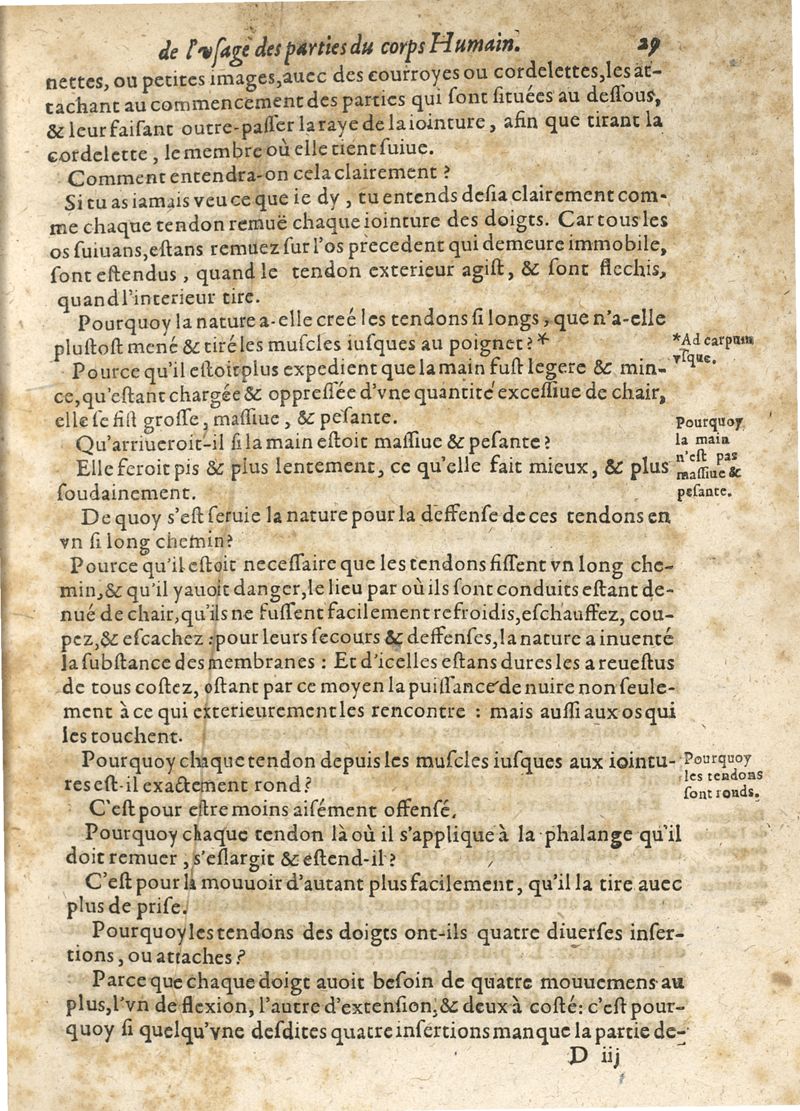 de l'vſage des parties du corps Humain. 29
nettes, ou petites images,auec des courroyes ou cordelettes,les at-
tachant au commencement des parties qui ſont ſituées au deſſous,
& leur faiſant outre-paſſer la raye de la iointure, afin que tirant la
cordelette, le membre où elle tient ſuiue.
Comment entendra-on cela clairement ?
Si tu as iamais veu ce que ie dy, tu entends deſia clairement com-
me chaque tendon remuë chaque iointure des doigts. Car tous les
os ſuiuans,eſtans remuez ſur l'os precedent qui demeure immobile,
ſont eſtendus, quand le tendon exterieur agiſt, & ſont flechis,
quand l'interieur tire.
Pourquoy la nature a-elle creé les tendons ſi longs, que n'a-elle
pluſtoſt mené & tiré les muſcles iuſques au poignet ? *
*Ad carpum
vſque.
Pource qu'il eſtoit plus expedient que la main fuſt legere & min-
ce,qu'eſtant chargée & oppreſſée d'vne quantité exceſſiue de chair,
elle ſe fiſt groſſe, maſſiue, & peſante.
Qu'arriueroit-il ſi la main eſtoit maſſiue & peſante ?
Pourquoy
la main
n'eſt pas
maſſiue &
peſante.
Elle feroit pis & plus lentement, ce qu'elle fait mieux, & plus
ſoudainement.
De quoy s'eſt ſeruie la nature pour la deffenſe de ces tendons en
vn ſi long chemin?
Pource qu'il eſtoit neceſſaire que les tendons fiſſent vn long che-
min,& qu'il y auoit danger,le lieu par où ils ſont conduits eſtant de-
nué de chair,qu'ils ne fuſſent facilement refroidis,eſchauffez, cou-
pez,& eſcachez : pour leurs ſecours & deffenſes,la nature a inuenté
la ſubſtance des membranes : Et d'icelles eſtans dures les a reueſtus
de tous coſtez, oſtant par ce moyen la puiſſance de nuire non ſeule-
ment à ce qui exterieurement les rencontre : mais auſſi aux os qui
les touchent.
Pourquoy chaque tendon depuis les muſcles iuſques aux iointu-
res eſt-il exactement rond ?
Pourquoy
les tendons
ſont ronds.
C'eſt pour eſtre moins aiſément offenſé.
Pourquoy chaque tendon là où il s'applique à la phalange qu'il
doit remuer, s'eſlargit & eſtend-il ?
C'eſt pour la mouuoir d'autant plus facilement, qu'il la tire auec
plus de priſe.
Pourquoy les tendons des doigts ont-ils quatre diuerſes inſer-
tions, ou attaches ?
Parce que chaque doigt auoit beſoin de quatre mouuemens au
plus,l'vn de flexion, l'autre d'extenſion,& deux à coſté: c'eſt pour-
quoy ſi quelqu'vne deſdites quatre inſertions manque la partie de-
D iij